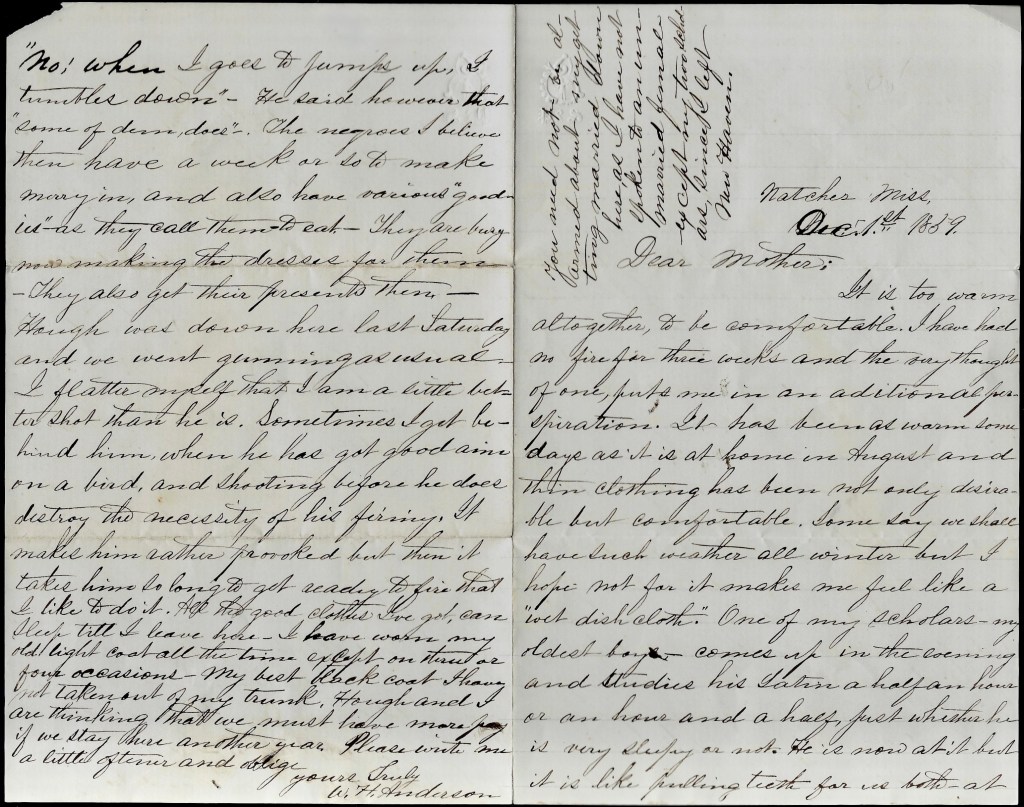 Natchez Miss,
Dec. 1st 1859.
Dear Mother;
It is too warm
altogether, to be comfortable. I have had
no fire for three weeks and the very thought
of one, puts me in an aditional per-
spiration. It has been as warm some
days as it is at home in August and
thin clothing has been not only desira-
ble but comfortable. Some say we shall
have such weather all winter but I
hope not for it makes me feel like a
"wet dish cloth". One of my scholars - my
oldest boy - comes up in the evening
and studies his Latin a half an hour
or an hour and a half, just whether he
is very sleepy or not. He is now at it but
it is like pulling teeth for us both - at
"No; when I goes to jumps up, I
tumbles down" - He said however that
"some of dem, does". The negroes I believe
then have a week or so to make
merry in, and also have various "good-
ies" as they call them - to eat - They are busy
now making the dresses for them
- They also get their presents then. -
Hough was down here last Saturday
and we went gunning as usual -
I flatter myself that I am a little bet-
ter shot than he is. Sometimes I get be-
hind him, when he has got good aim
on a bird, and shooting before he does
destroy the necessity of his firing. It
makes him rather provoked but then it
takes him so long to get ready to fire that
I like to do it. All the good clothes I've got, can
sleep till I leave here - I have worn my
old light coat all the time except on three or
four occasions - My best black coat I have
not taken out of my trunk. Hough and I
are thinking that we must have more pay
if we stay here another year. Please write me
a little oftener and oblige
yours Truly
W. H. Anderson
You need not be al-
armed about my get
ting married down
here, as I have not
spoken to an un-
married femal
except my two schol-
ars, since I left
New Haven.